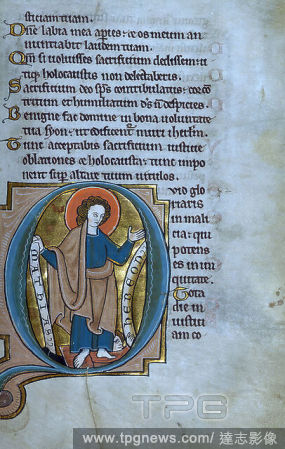 sticiam tuam.
Dñe labia mea aperies: & os meum an
nuntiabit laudem tuam.
Qm̃ si uoluisses sacrificium dedissem: u
tiq; holocaustis non delectaberis.
Sacrificium deo sp̃s contribulatus: cor con
tritum & humiliatum ds̃ ñ despicies.
Benigne fac domine in bona uoluntate
tua syon: ut edificent̃ muri ihrl̃m.
Tunc acceptabis sacrificium iusticie
oblationes & holocausta: tunc impo
nent sup̃ altare tuum uitulos.
Quid glo
riaris
in mali
cia: qui
potens
es in ini
quitate.
Tota
die in
iusticiam
am co
MATHIAS
TPG
www.tpgnews.com / 達志影像